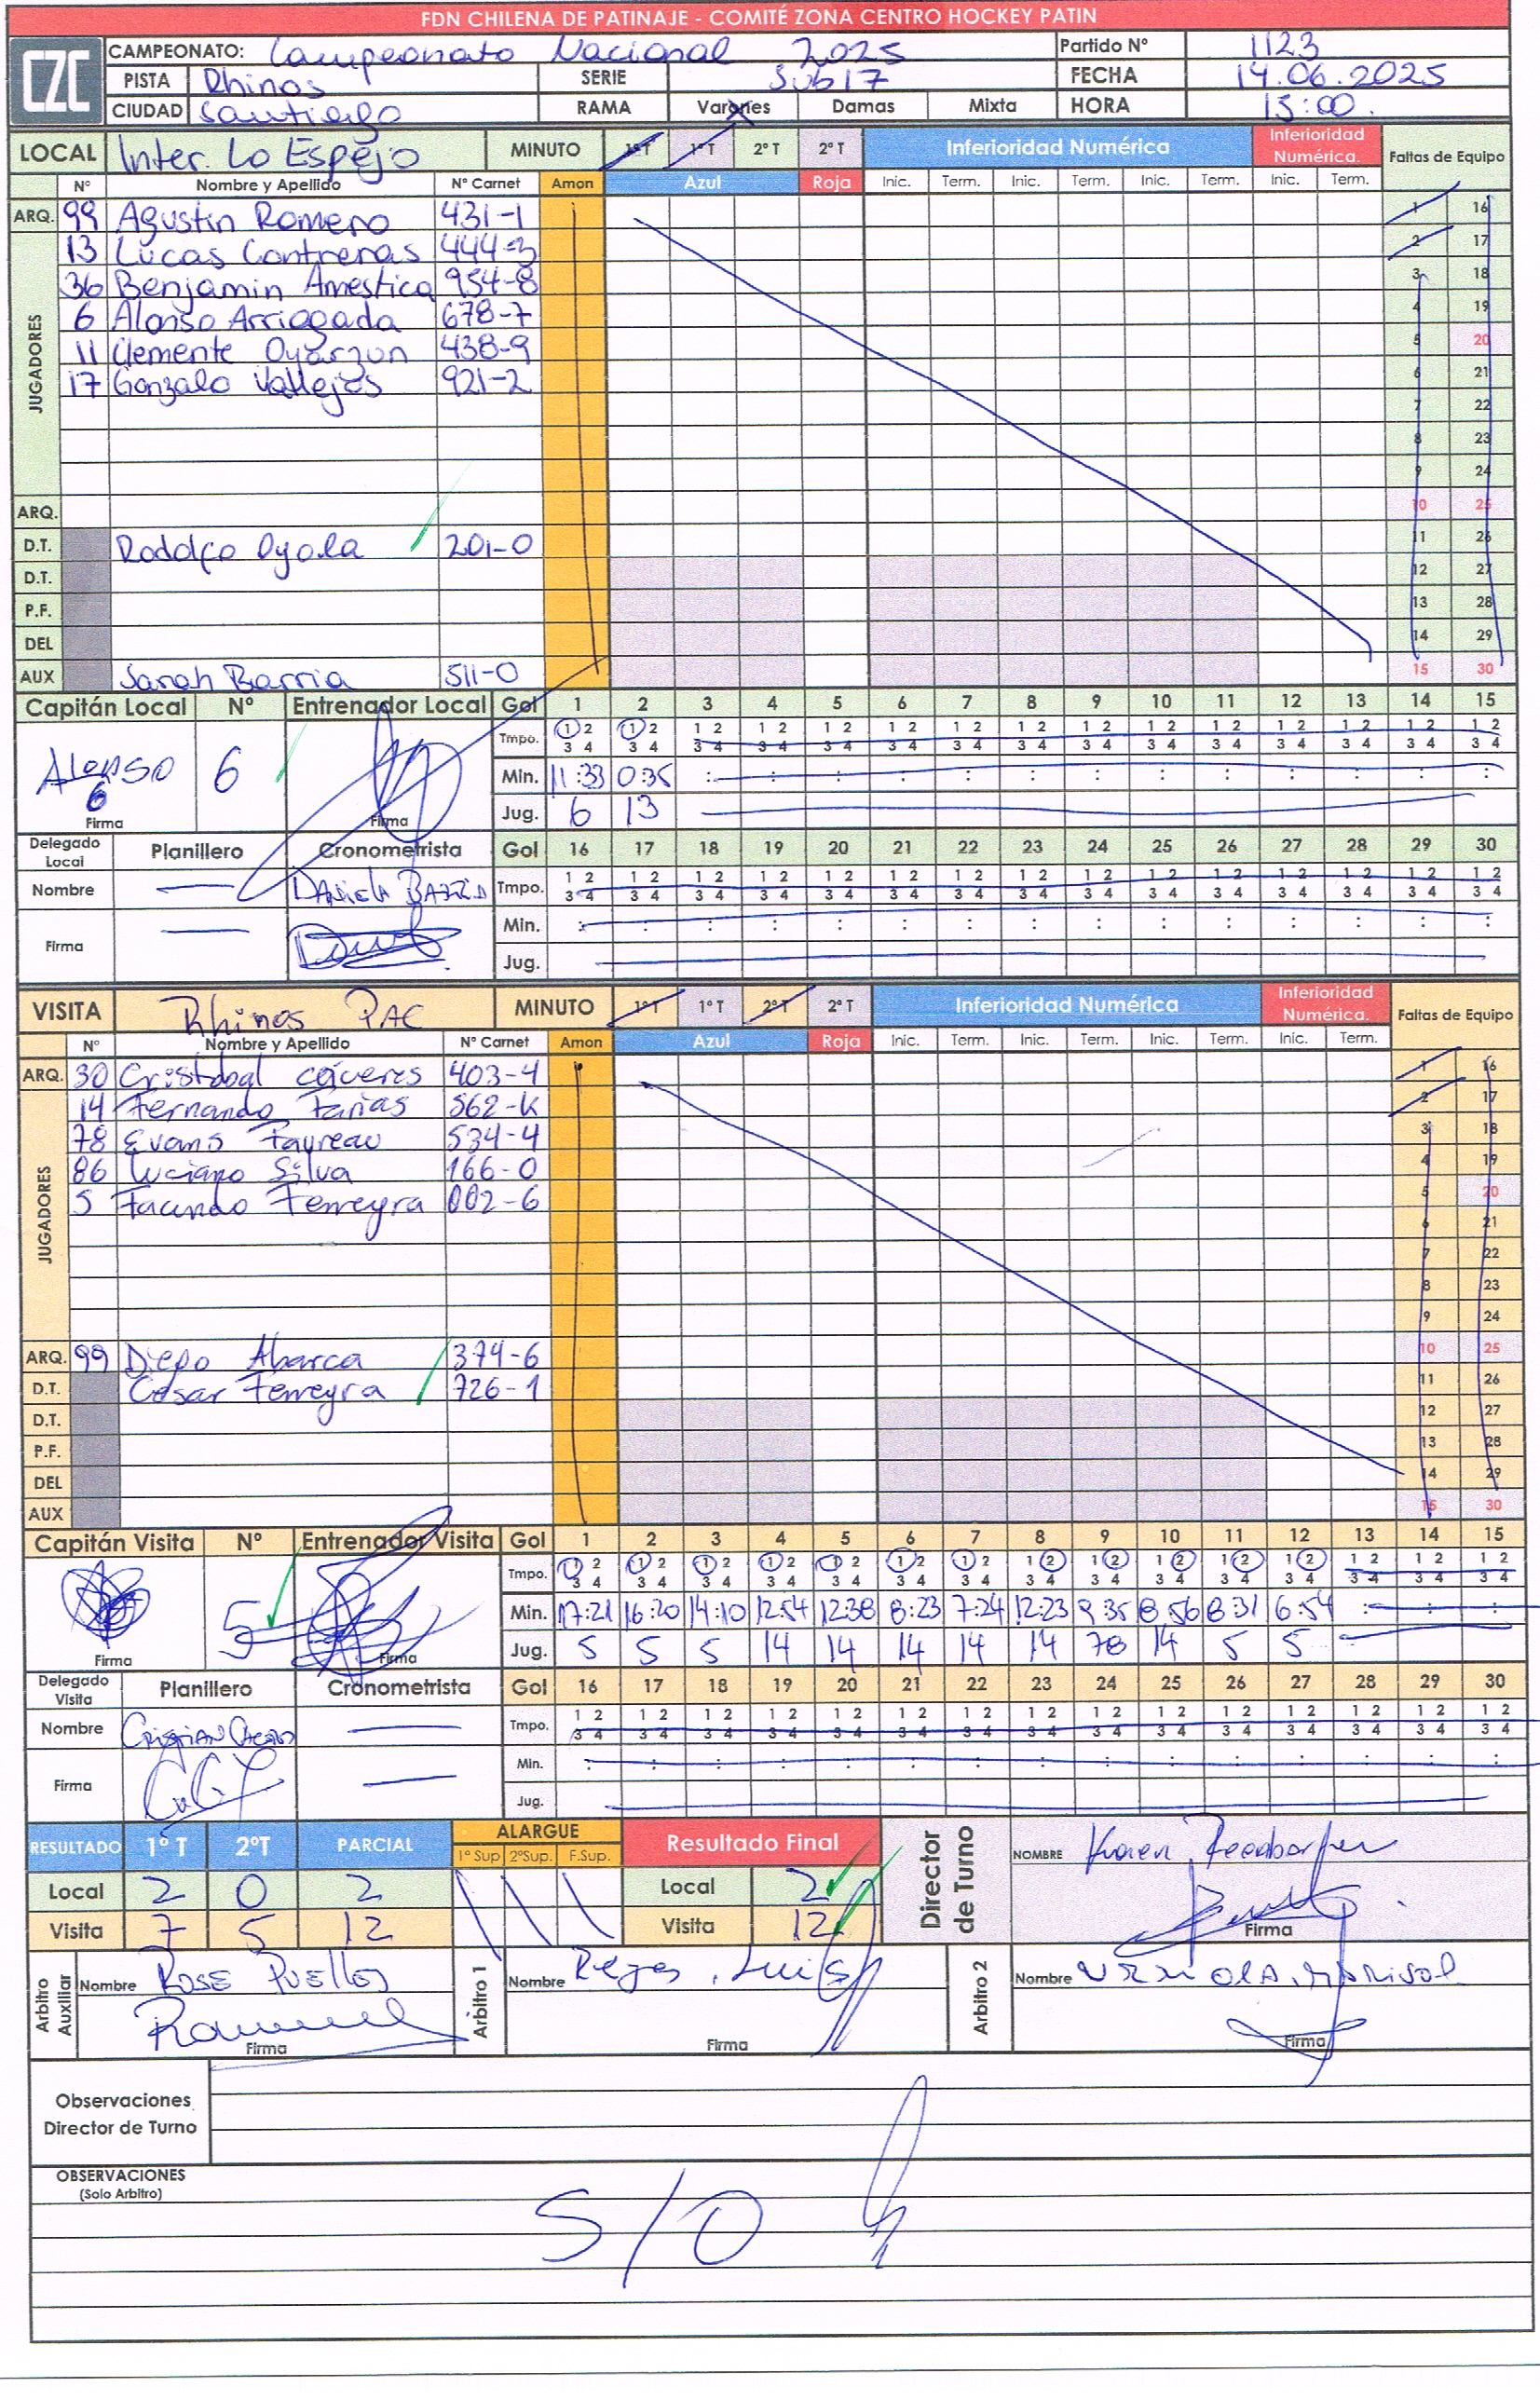 FDN CHILENA DE PATINAJE - COMITÉ ZONA CENTRO HOCKEY PATIN
CZC
CAMPEONATO: Campeonato Nacional 2025 Partido Nº 1123
PISTA Rhinos SERIE Sub17 FECHA 14.06.2025
CIUDAD Santiago RAMA Varones Damas Mixta HORA 15:00.
LOCAL Inter. Lo Espejo MINUTO 1º T 1º T 2º T 2º T Inferioridad Numérica Inferioridad Numérica. Faltas de Equipo
Nº Nombre y Apellido Nº Carnet Amon Azul Roja Inic. Term. Inic. Term. Inic. Term. Inic. Term.
ARQ. 99 Agustin Romero 431-1 1 16
JUGADORES
13 Lucas Contreras 444-3 2 17
36 Benjamin Amestica 954-8 3 18
6 Alonso Arriagada 678-7 4 19
11 Clemente Oyarzun 438-9 5 20
17 Gonzalo Vallejos 921-2 6 21
7 22
8 23
9 24
ARQ. 10 25
D.T. Rodolfo Oyola 201-0 11 26
D.T. 12 27
P.F. 13 28
DEL 14 29
AUX Sarah Barria 511-0 15 30
Capitán Local Nº Entrenador Local Gol 1 2 3 4 5 6 7 8 9 10 11 12 13 14 15
Tmpo. 1 2 1 2 1 2 1 2 1 2 1 2 1 2 1 2 1 2 1 2 1 2 1 2 1 2 1 2 1 2
3 4 3 4 3 4 3 4 3 4 3 4 3 4 3 4 3 4 3 4 3 4 3 4 3 4 3 4 3 4
Alonso 6 6 Min. 11:33 0:35 : : : : : : : : : : : : :
Firma Firma Jug. 6 13
Delegado Local Planillero Cronometrista Gol 16 17 18 19 20 21 22 23 24 25 26 27 28 29 30
Nombre Daniela Barria Tmpo. 1 2 1 2 1 2 1 2 1 2 1 2 1 2 1 2 1 2 1 2 1 2 1 2 1 2 1 2 1 2
3 4 3 4 3 4 3 4 3 4 3 4 3 4 3 4 3 4 3 4 3 4 3 4 3 4 3 4 3 4
Firma Min. : : : : : : : : : : : : : : :
Jug.
VISITA Rhinos PAC MINUTO 1º T 1º T 2º T 2º T Inferioridad Numérica Inferioridad Numérica. Faltas de Equipo
Nº Nombre y Apellido Nº Carnet Amon Azul Roja Inic. Term. Inic. Term. Inic. Term. Inic. Term.
ARQ. 30 Cristobal cáceres 403-4 1 16
JUGADORES
14 Fernando Farias 562-K 2 17
78 Evans Faureau 534-4 3 18
86 Luciano Silva 166-0 4 19
5 Facundo Ferreyra 002-6 5 20
6 21
7 22
8 23
9 24
ARQ. 99 Diego Abarca 374-6 10 25
D.T. César Ferreyra 726-1 11 26
D.T. 12 27
P.F. 13 28
DEL 14 29
AUX 15 30
Capitán Visita Nº Entrenador Visita Gol 1 2 3 4 5 6 7 8 9 10 11 12 13 14 15
Tmpo. 1 2 1 2 1 2 1 2 1 2 1 2 1 2 1 2 1 2 1 2 1 2 1 2 1 2 1 2 1 2
3 4 3 4 3 4 3 4 3 4 3 4 3 4 3 4 3 4 3 4 3 4 3 4 3 4 3 4 3 4
5 Min. 17:21 16:20 14:10 12:54 12:38 8:23 7:24 12:23 9:35 8:56 8:31 6:54 : : :
Firma Firma Jug. 5 5 5 14 14 14 14 14 78 14 5 5
Delegado Visita Planillero Cronometrista Gol 16 17 18 19 20 21 22 23 24 25 26 27 28 29 30
Nombre Cristian Tmpo. 1 2 1 2 1 2 1 2 1 2 1 2 1 2 1 2 1 2 1 2 1 2 1 2 1 2 1 2 1 2
3 4 3 4 3 4 3 4 3 4 3 4 3 4 3 4 3 4 3 4 3 4 3 4 3 4 3 4 3 4
Firma Min. : : : : : : : : : : : : : : :
Jug.
RESULTADO 1º T 2ºT PARCIAL ALARGUE Resultado Final Director de Turno NOMBRE Karen
1º Sup 2ºSup. F.Sup.
Local 2 0 2 Local 2
Visita 7 5 12 Visita 12 Firma
Arbitro Auxiliar Nombre Rose Puelles Arbitro 1 Nombre Reyes, Luis Arbitro 2 Nombre Marisol
Firma Firma Firma
Observaciones
Director de Turno
OBSERVACIONES
(Solo Arbitro)
S/O